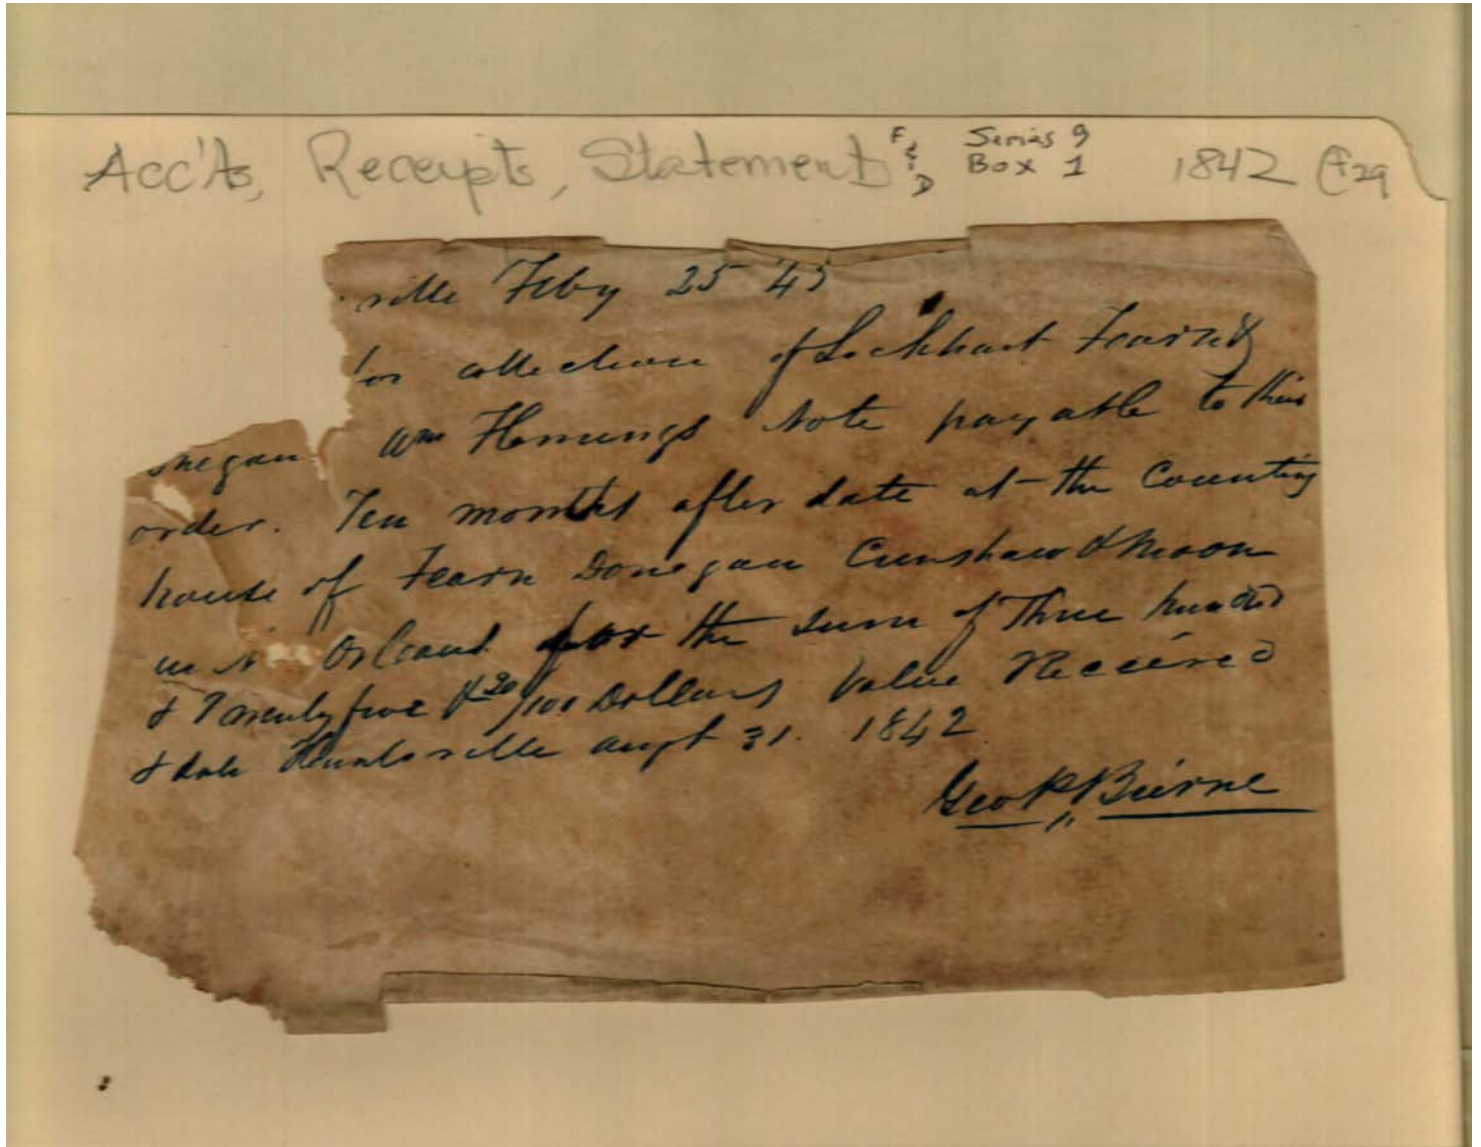 Acc'ts, Receipts, Statements F & D Series 9
Box 1 1842
ville Feby 25 43
for collection of Lockhart Fearn &
onegan Wm Flemings Note payable to their
order. Ten months after date at the Counting
house of Fearn Donegan Crenshaw & Moon
in N Orleans for the sum of Three hundred
& Twenty five & 20/100 Dollars Value Received
& date Huntsville augt 31. 1842
Geo P. Bierne